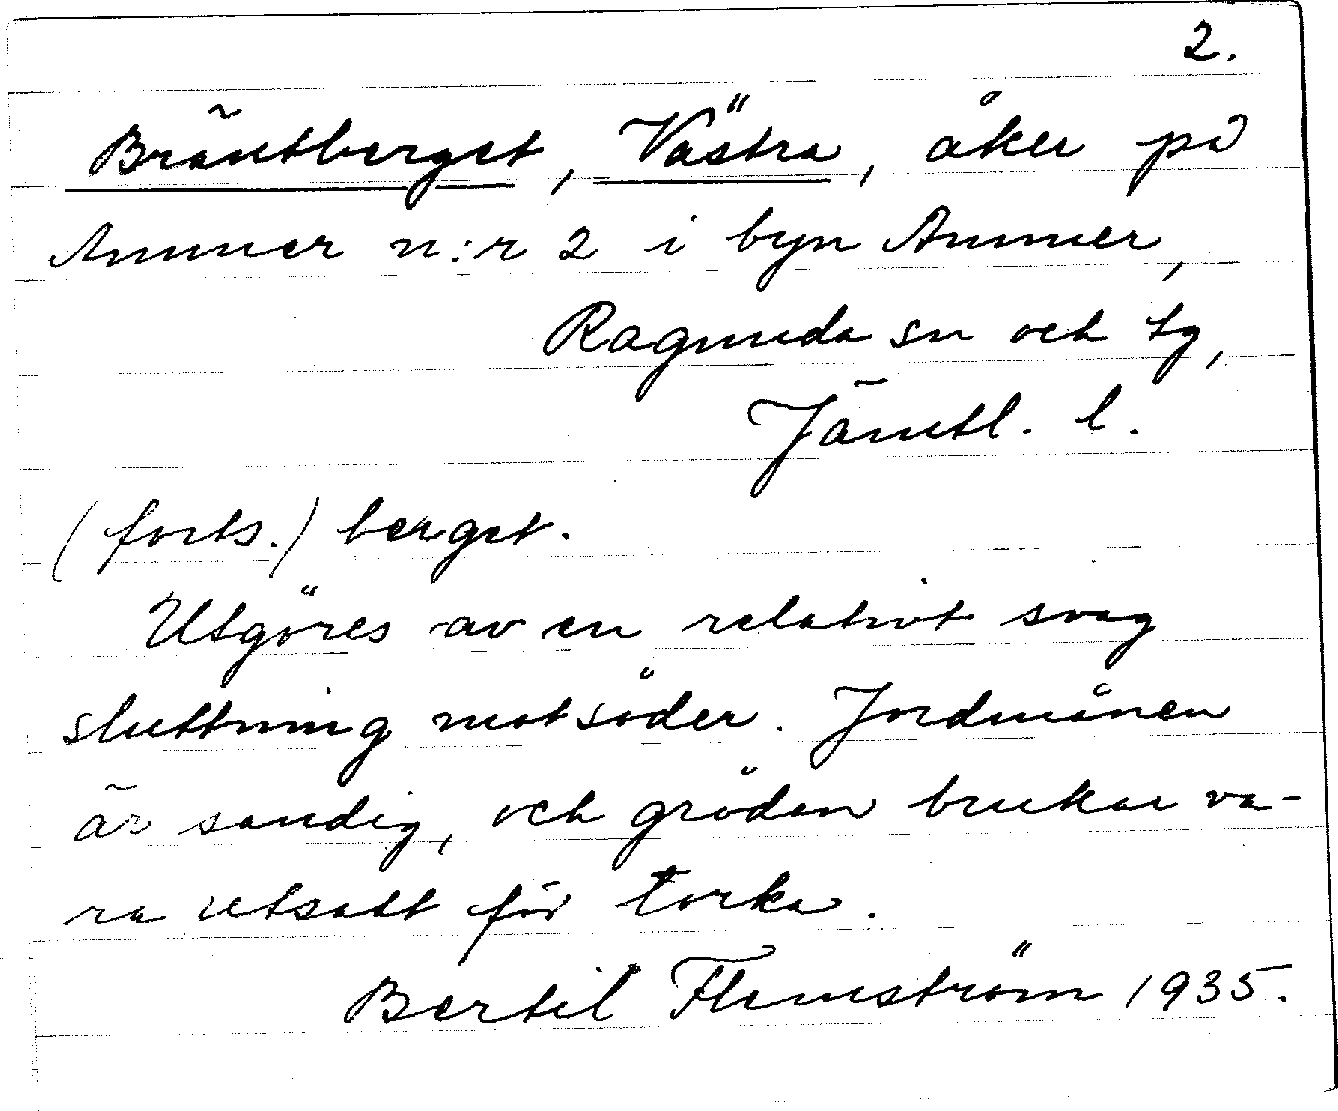 2.
Bräntberget, Västra, åker på
Ammer n:r 2 i byn Ammer,
Ragunda sn och tg,
Jämtl. l.
(forts.) berget.
Utgöres av en relativt svag
sluttning mot söder. Jordmånen
är sandig, och grödan brukar va-
ra utsatt för torka.
Bertil Flemström 1935.